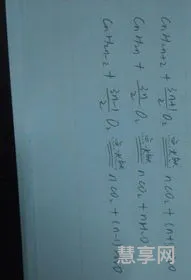 CnH2n+2 + 3n+1/2 O2 点燃 nCO2 + (n+1)
CnH2n + 3n/2 O2 点燃 nCO2 + nH2O
CnH2n-2 + 3n-1/2 O2 点燃 nCO2 + (n-1)H2O
慧享网
www.